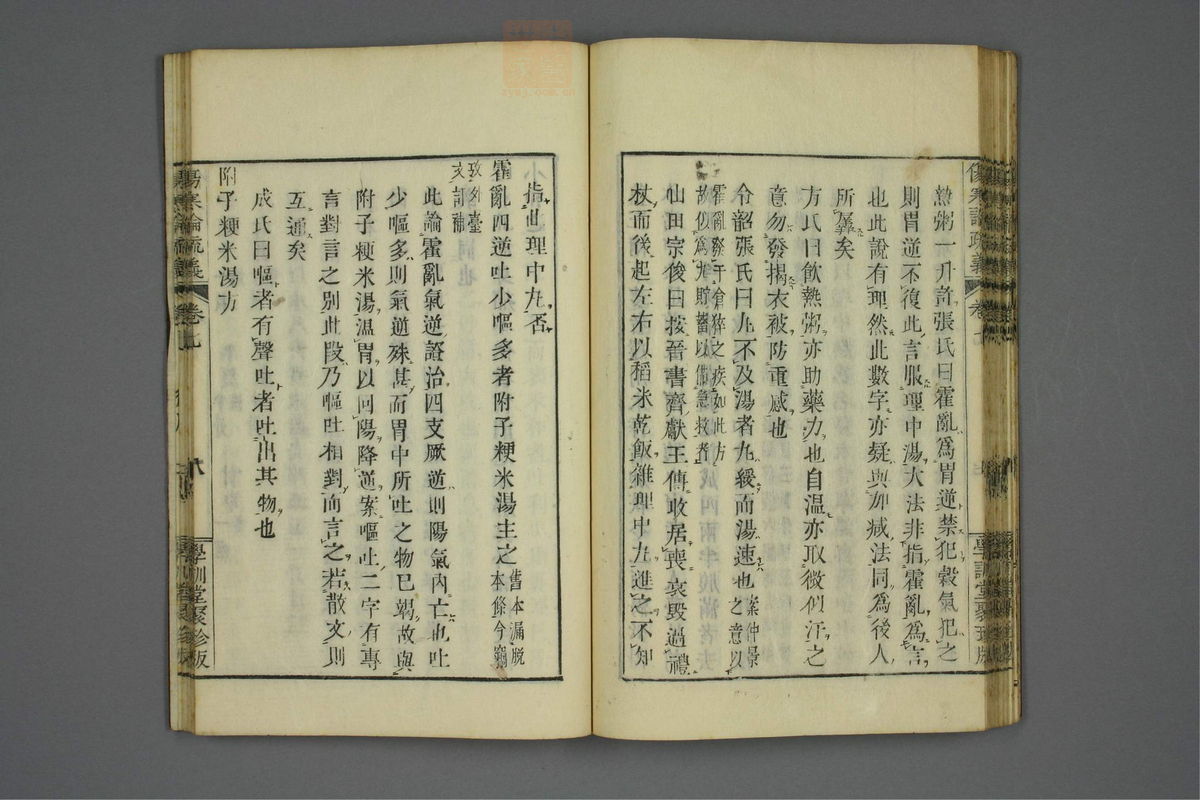 熱粥一升許張氏曰霍亂爲胃逆禁犯穀氣犯之
則胃逆不復此言服理中湯大法非指霍亂爲言
也此說有理然此數字亦疑與加減法同爲後人
所羼矣
方氏曰飲熱粥亦助藥力也自溫亦取微似汗之
意勿發揭衣被防重感也
令韶張氏曰丸不及湯者丸緩而湯速也案仲景之意以
霍亂發于倉猝之疾如此方
故似爲丸貯蓄以備急救者
山田宗俊曰按晉書齊獻王傳攸居喪哀毀過禮
杖而後起左右以稻米乾飯雜理中丸進之不知
指此理中丸否
霍亂四逆吐少嘔多者附子粳米湯主之舊本漏脫本條今竊
攷外臺
文訂補
此論霍亂氣逆證治四支厥逆則陽氣內亡也吐
少嘔多則氣逆殊甚而胃中所吐之物已竭故與
附子粳米湯溫胃以回陽降逆案嘔吐二字有專
言對言之別此段乃嘔吐相對而言之若散文則
互通矣
成氏曰嘔者有聲吐者吐出其物也
附子粳米湯方
傷寒論疏義
卷七
學訓堂聚珍版